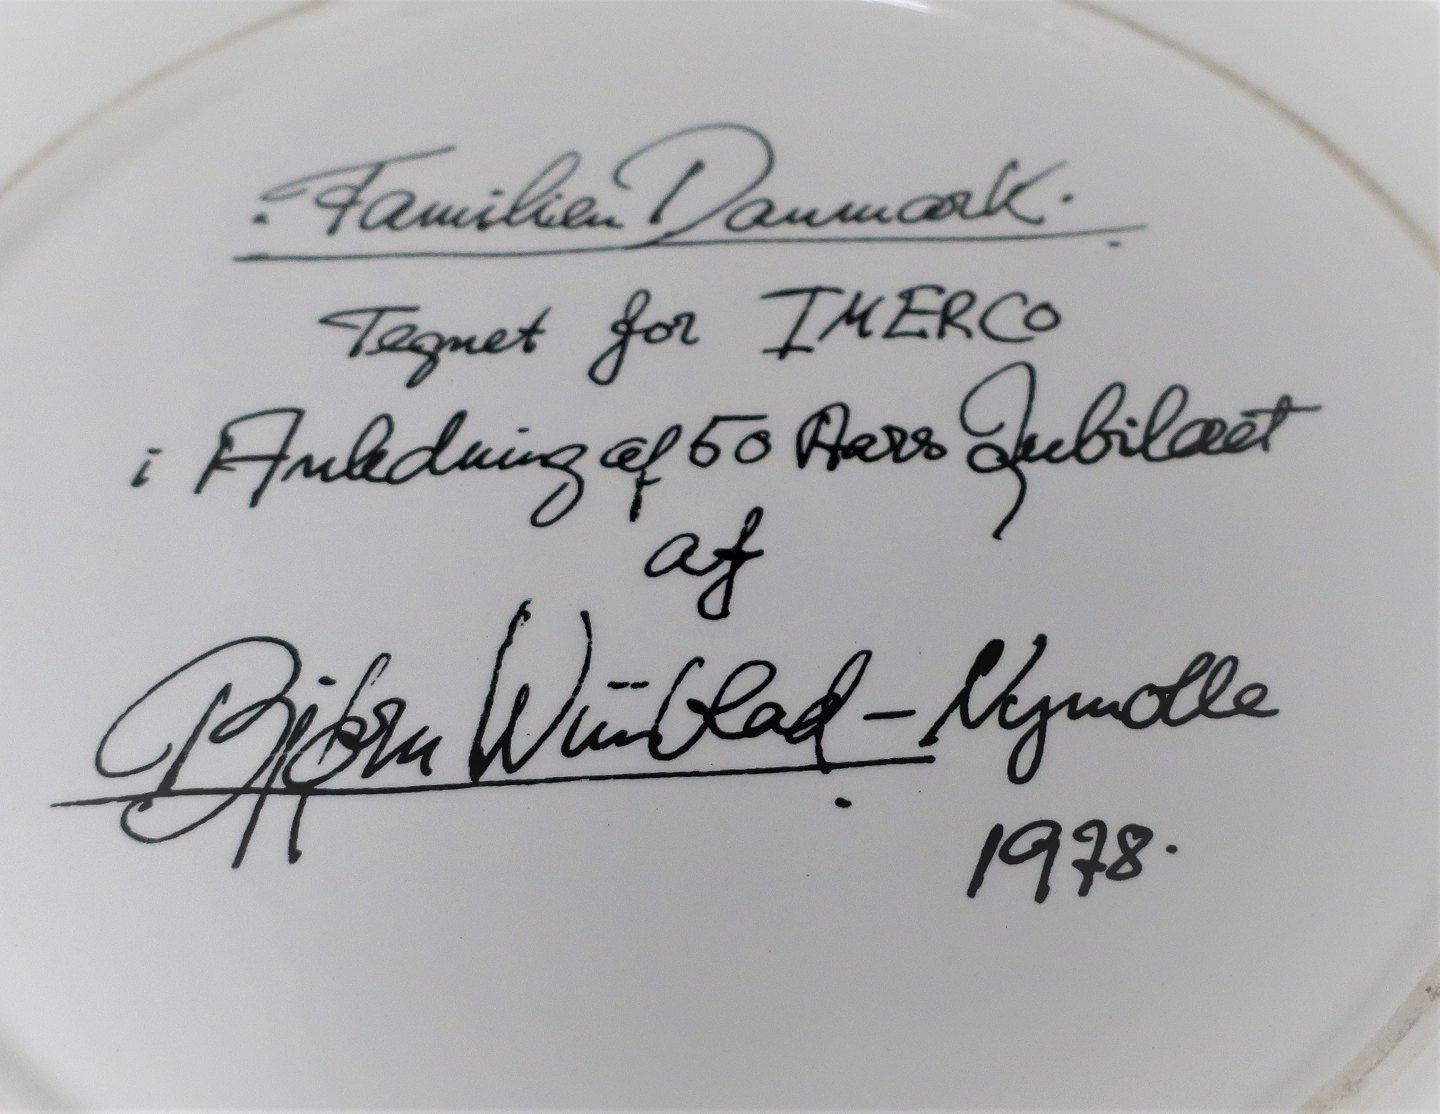 . Familien Danmark .
Tegnet for IMERCO
i Anledning af 50 Aars Jubilæet
af
Björn Wiinblad - Nymolle
1978.